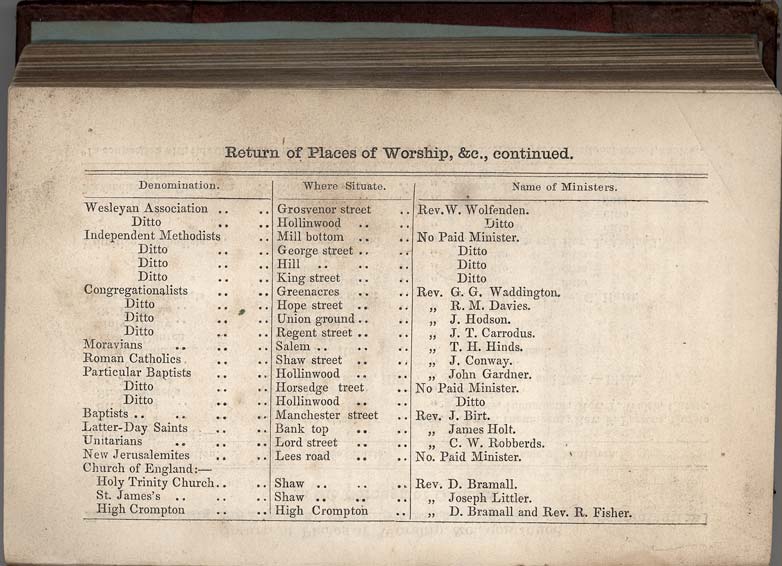 Return of Places of Worship, &c., continued.
Denomination. Where Situate. Name of Ministers.
Wesleyan Association .. .. Grosvenor street .. Rev. W. Wolfenden.
Ditto .. .. Hollinwood .. .. Ditto
Independent Methodists .. Mill bottom .. .. No Paid Minister.
Ditto .. .. George street .. .. Ditto
Ditto .. .. Hill .. .. .. Ditto
Ditto .. .. King street .. .. Ditto
Congregationalists .. .. Greenacres .. .. Rev. G. G. Waddington.
Ditto .. .. Hope street .. .. „ R. M. Davies.
Ditto .. .. Union ground .. .. „ J. Hodson.
Ditto .. .. Regent street .. .. „ J. T. Carrodus.
Moravians .. .. .. Salem .. .. .. „ T. H. Hinds.
Roman Catholics .. .. Shaw street .. .. „ J. Conway.
Particular Baptists .. .. Hollinwood .. .. „ John Gardner.
Ditto .. .. Horsedge treet .. No Paid Minister.
Ditto .. .. Hollinwood .. .. „ Ditto
Baptists .. .. .. .. Manchester street .. Rev. J. Birt.
Latter-Day Saints .. .. Bank top .. .. „ James Holt.
Unitarians .. .. .. Lord street .. .. „ C. W. Robberds.
New Jerusalemites .. .. Lees road .. .. No. Paid Minister.
Church of England:—
Holy Trinity Church .. .. Shaw .. .. .. Rev. D. Bramall.
St. James's .. .. .. Shaw .. .. .. „ Joseph Littler.
High Crompton .. .. High Crompton .. „ D. Bramall and Rev. R. Fisher.